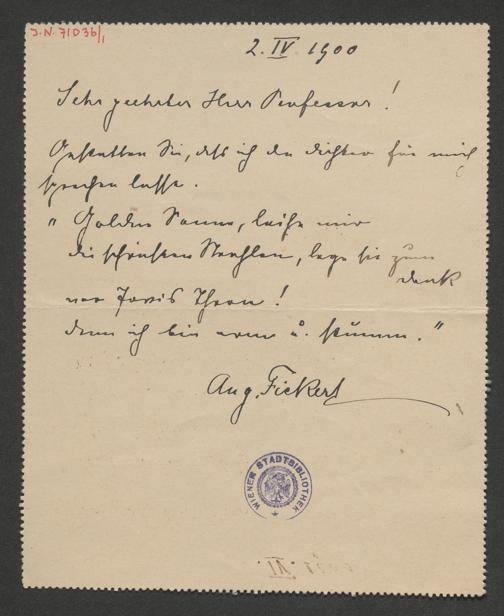 J.N. 71036/1
2. IV. 1900
Sehr geehrter Herr Professor!
Gestatten Sie, daß ich den Dichter für mich
sprechen lasse.
"Goldne Sonne, leihe mir
die schönsten Strahlen, lege sie zum
Dank
vor Jovis Thron!
denn ich bin arm u. stumm."
Aug. Fickert
WIENER STADTBIBLIOTHEK